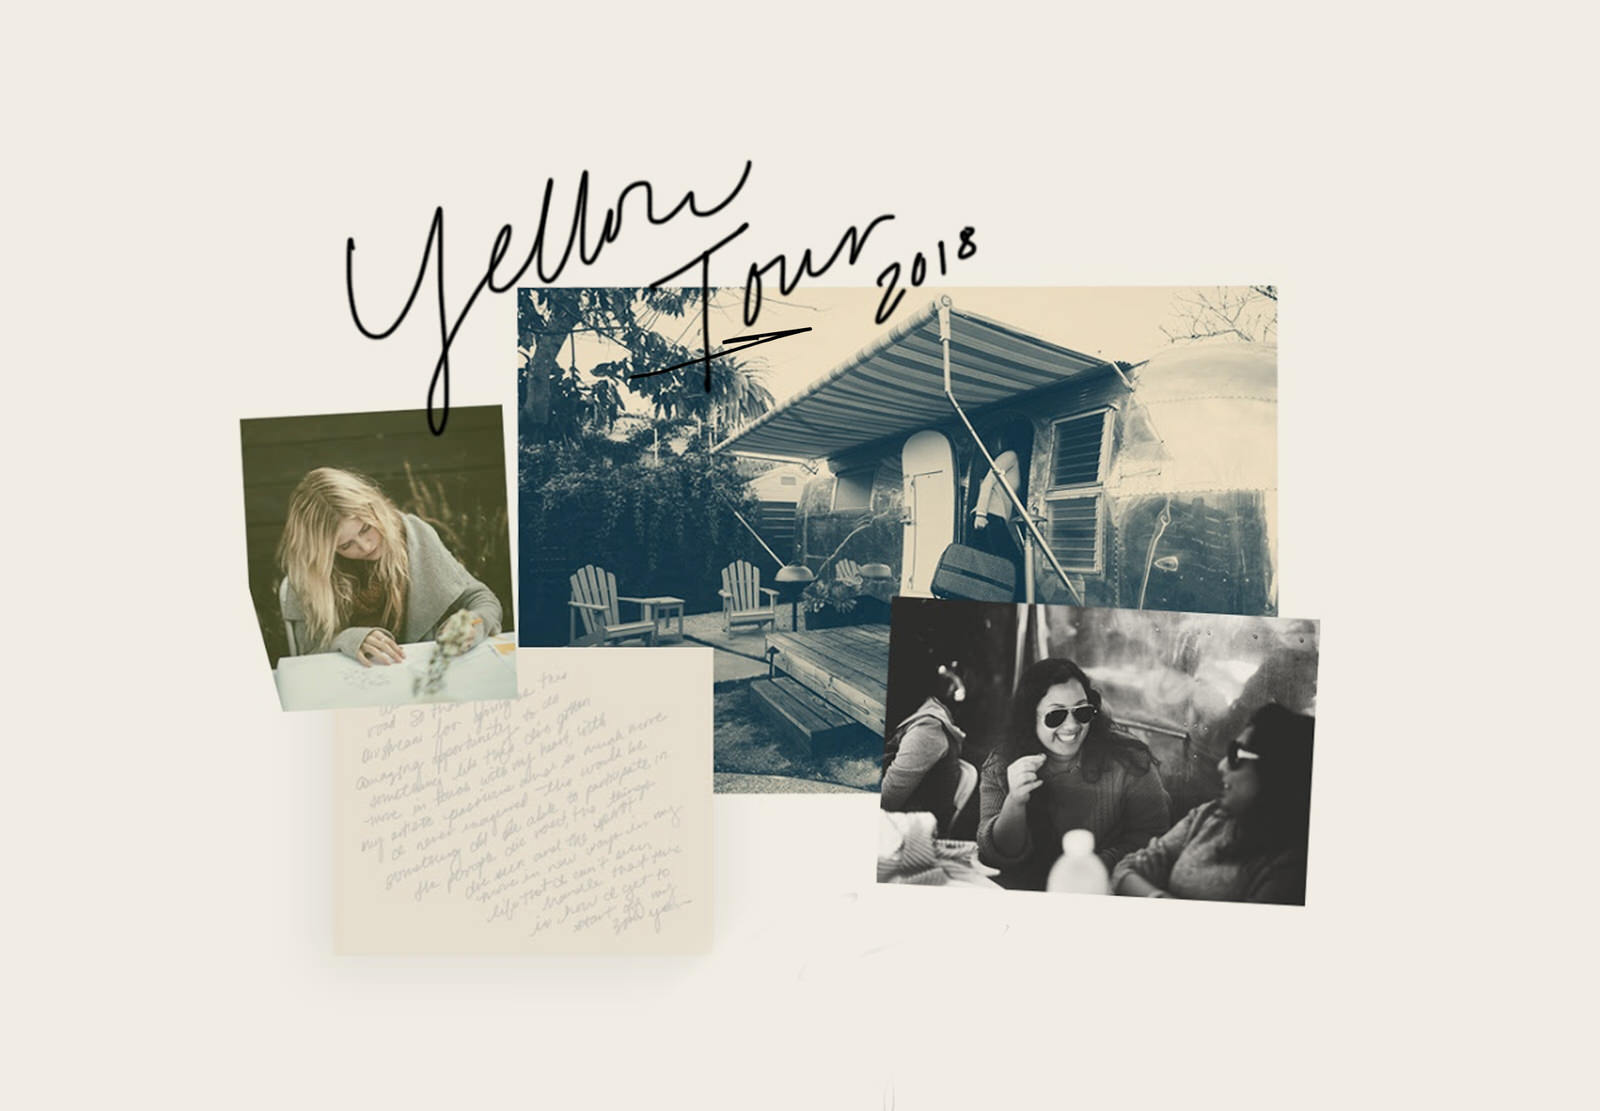 Yellow
Tour 2018
this
for giving
Airstream for
amazing opportunity to do
something like this. I've gotten
move in Texas with my heart, with
my artistic passions and so much more
I never imagined this would be
something I'd be able to participate in.
the people I've met, the things
I've seen and the
move in new ways in my
life that I can't even
handle that this
is how I get to
start off my
2018 year